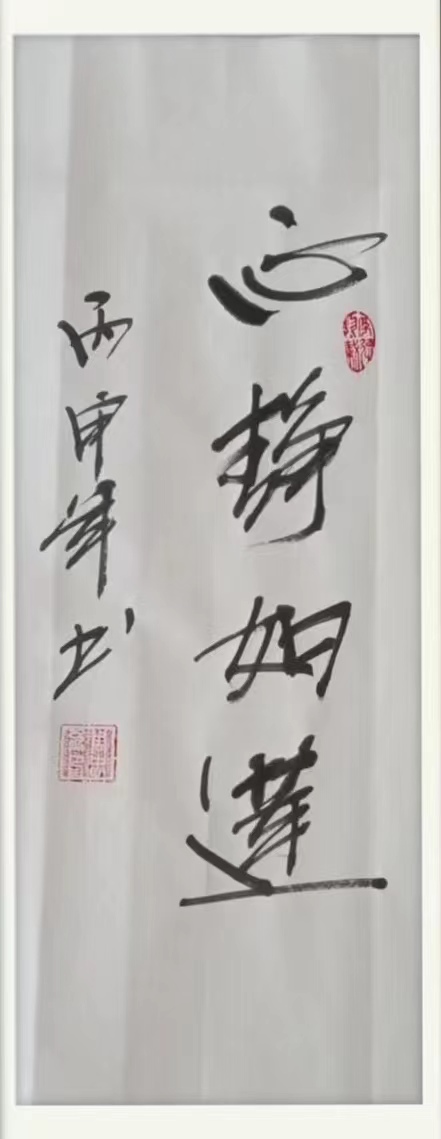 心静如莲
丙申年书